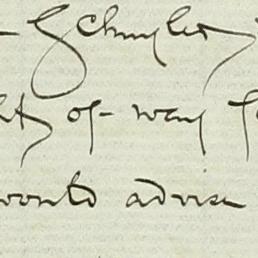 Schuyler
of way
would advise